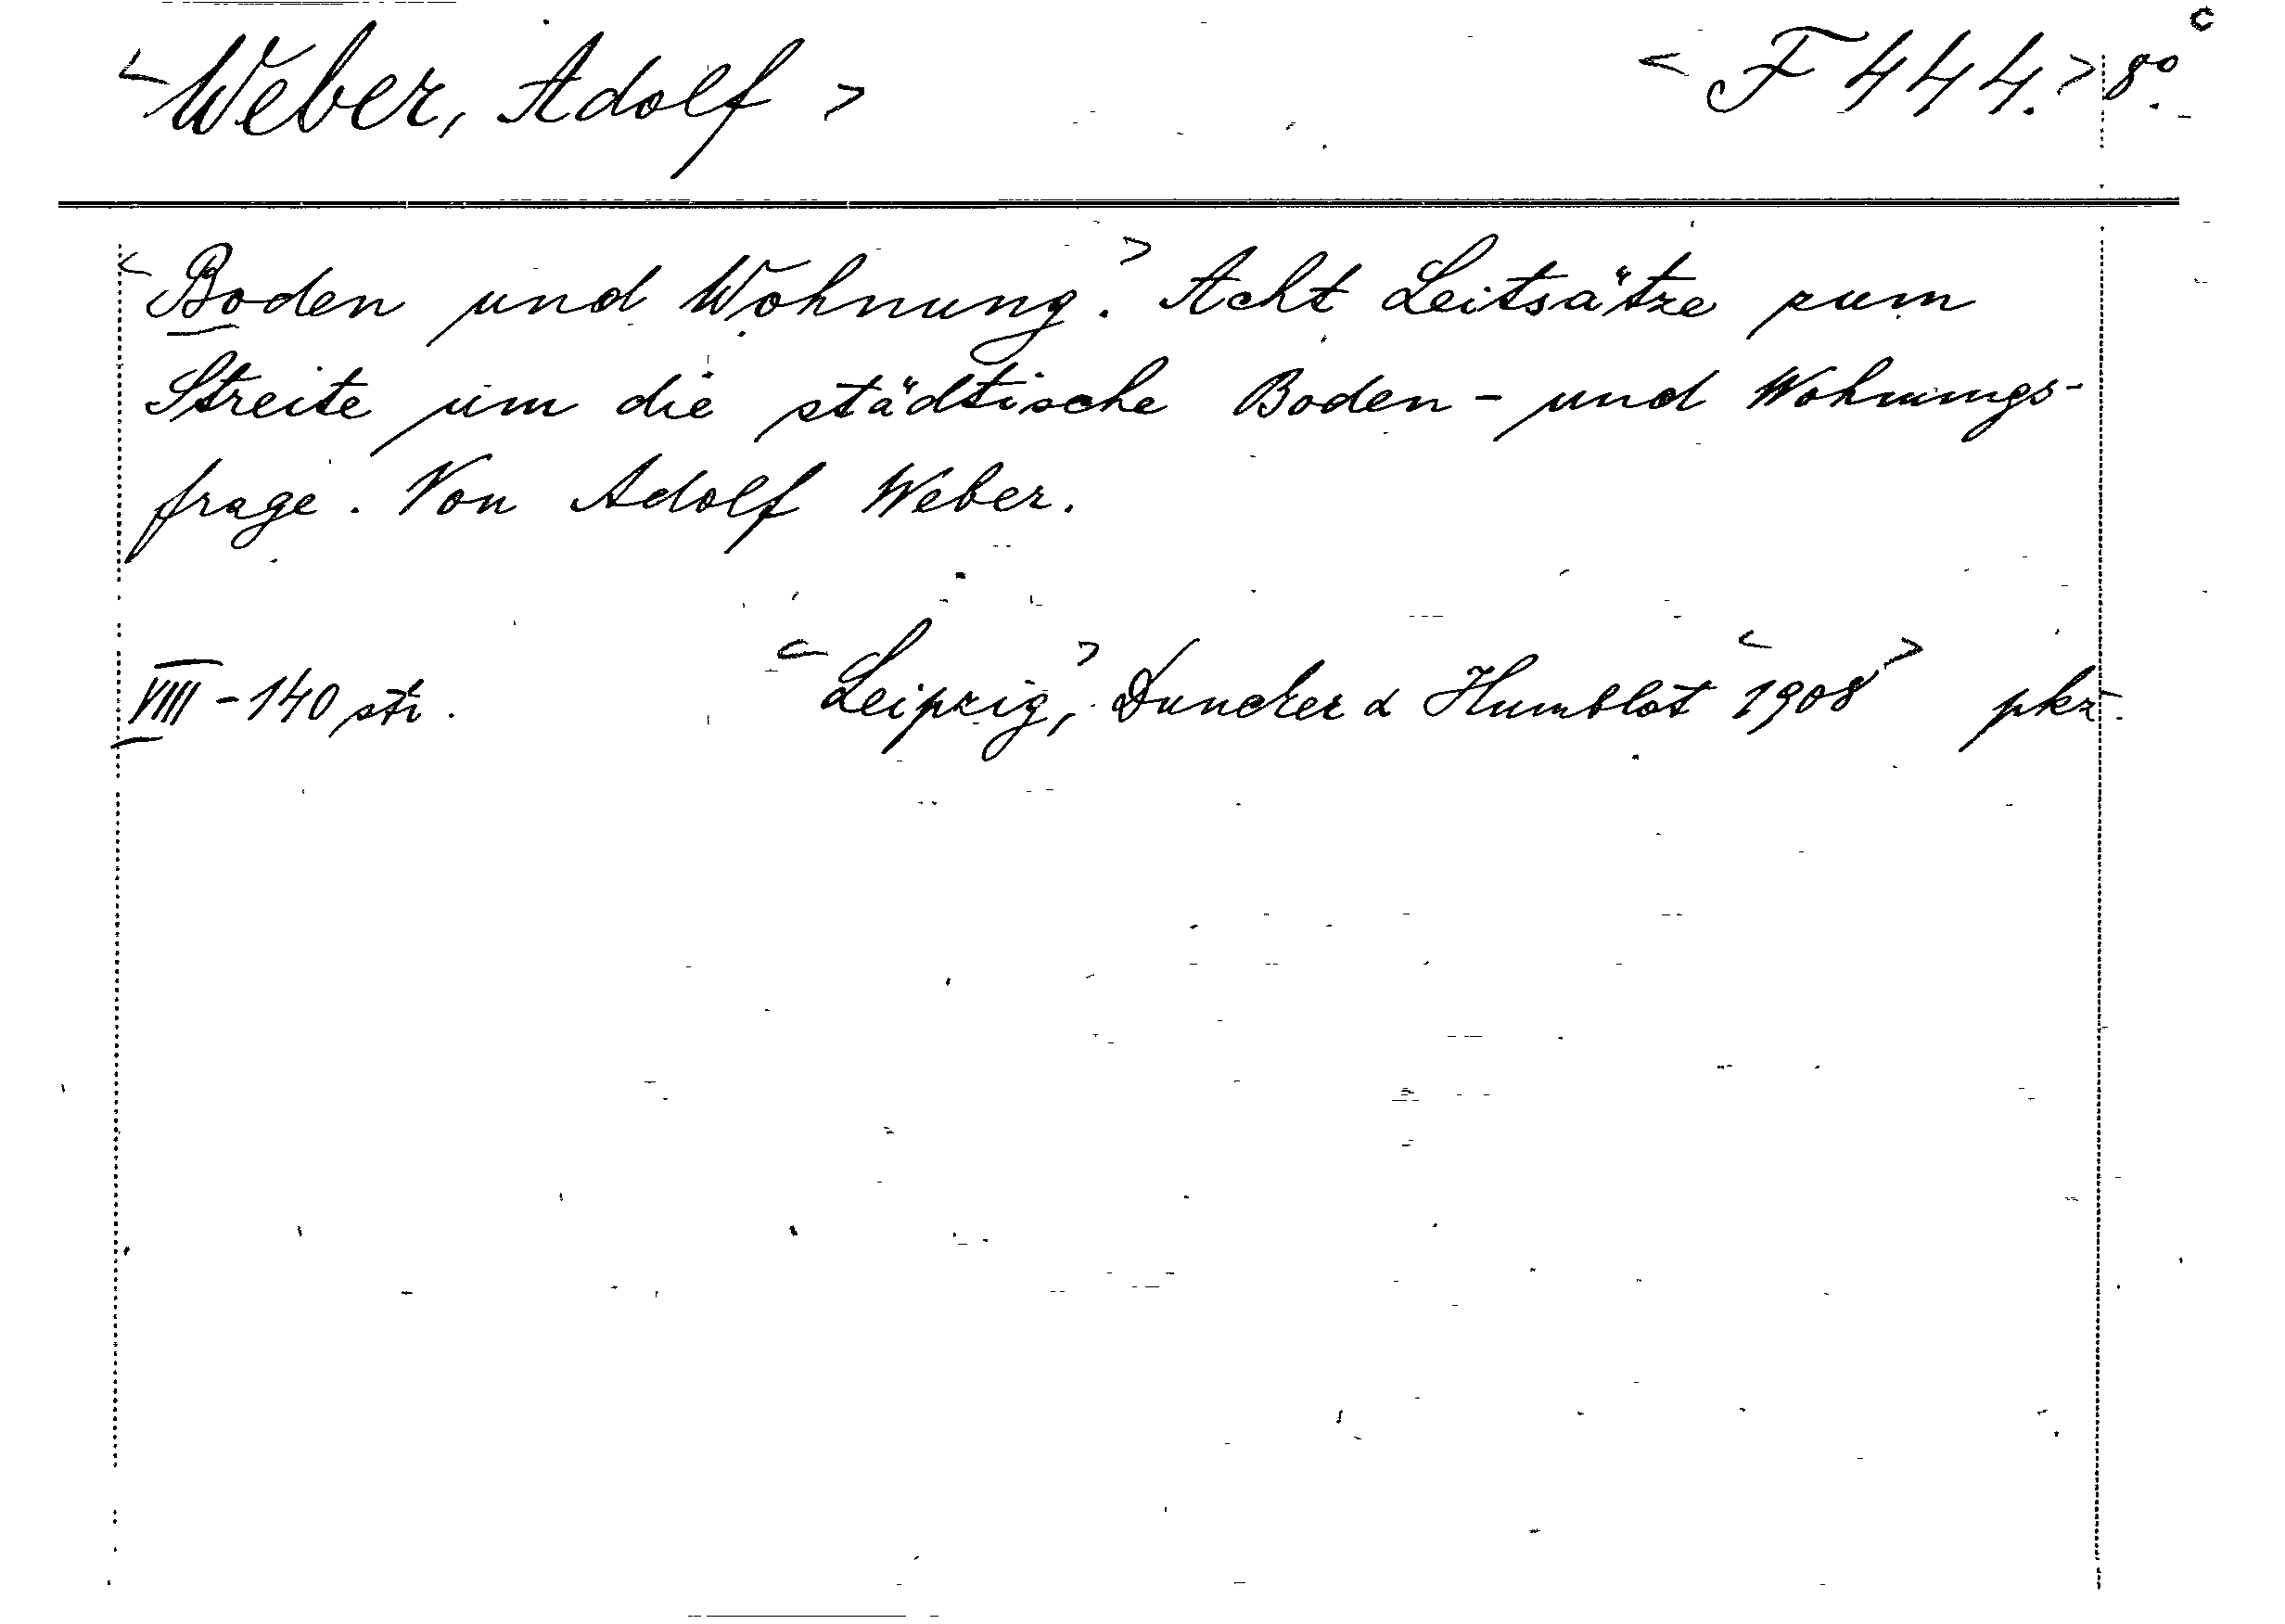 <Weber, Adolf> <F 444.> 8º. c
<Boden und Wohnung.> Acht Leitsätze zum
Streite um die städtische Boden- und Wohnungs-
frage. Von Adolf Weber.
VIII-140 str. <Leipzig,> Duncker & Humblot <1908> pkz